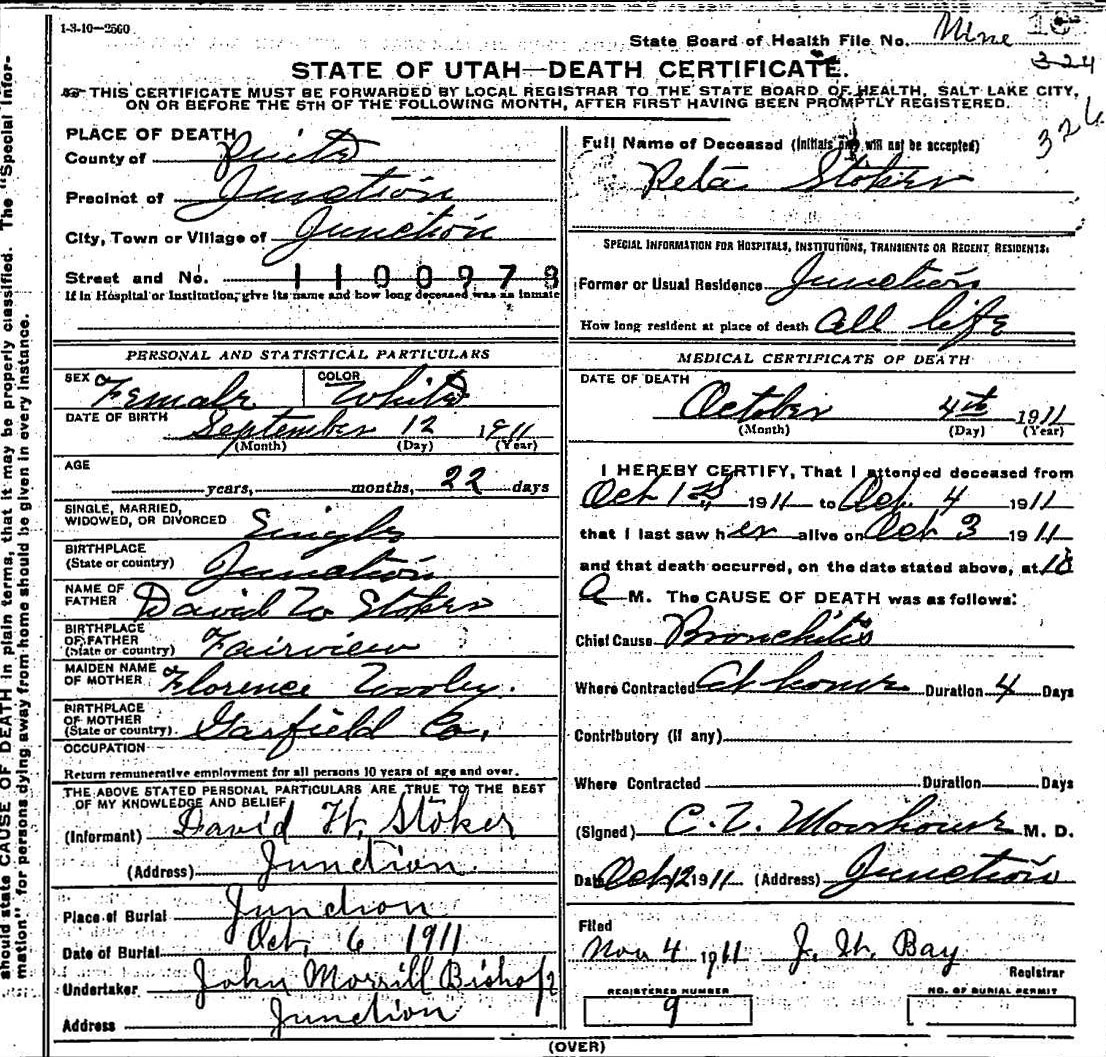 1-3-10—2560
State Board of Health File No. Mine
324
STATE OF UTAH—DEATH CERTIFICATE.
THIS CERTIFICATE MUST BE FORWARDED BY LOCAL REGISTRAR TO THE STATE BOARD OF HEALTH, SALT LAKE CITY,
ON OR BEFORE THE 5TH OF THE FOLLOWING MONTH, AFTER FIRST HAVING BEEN PROMPTLY REGISTERED.
326
should state CAUSE OF DEATH in plain terms, that it may be properly classified. The "Special Infor-
mation" for persons dying away from home should be given in every instance.
PLACE OF DEATH
County of Piute
Precinct of Junction
City, Town or Village of Junction
Street and No. 1100978
If in Hospital or Institution, give its name and how long deceased was an inmate
PERSONAL AND STATISTICAL PARTICULARS
SEX Female COLOR White
DATE OF BIRTH September 12 1911
(Month) (Day) (Year)
AGE
years, months, 22 days
SINGLE, MARRIED,
WIDOWED, OR DIVORCED Single
BIRTHPLACE
(State or country) Junction
NAME OF
FATHER David W Stoker
BIRTHPLACE
OF FATHER
(State or country) Fairview
MAIDEN NAME
OF MOTHER Florence
BIRTHPLACE
OF MOTHER
(State or country) Garfield Co.
OCCUPATION
Return remunerative employment for all persons 10 years of age and over.
THE ABOVE STATED PERSONAL PARTICULARS ARE TRUE TO THE BEST
OF MY KNOWLEDGE AND BELIEF
(Informant) David W. Stoker
(Address) Junction
Place of Burial Junction
Date of Burial Oct. 6 1911
Undertaker John Morrill Bishop
Address Junction
Full Name of Deceased (Initials only will not be accepted)
Reta Stoker
SPECIAL INFORMATION FOR HOSPITALS, INSTITUTIONS, TRANSIENTS OR RECENT RESIDENTS.
Former or Usual Residence Junction
How long resident at place of death All life
MEDICAL CERTIFICATE OF DEATH
DATE OF DEATH
October 4th 1911
(Month) (Day) (Year)
I HEREBY CERTIFY, That I attended deceased from
Oct 1st 1911 to Oct. 4 1911
that I last saw her alive on Oct 3 1911
and that death occurred, on the date stated above, at 10
A M. The CAUSE OF DEATH was as follows:
Chief Cause Bronchitis
Where Contracted At home Duration 4 Days
Contributory (if any)
Where Contracted Duration Days
(Signed) C. M. D.
Date Oct 12 1911 (Address) Junction
Filed
Nov 4 1911 J. W. Bay
Registrar
REGISTERED NUMBER
9
NO. OF BURIAL PERMIT
(OVER)